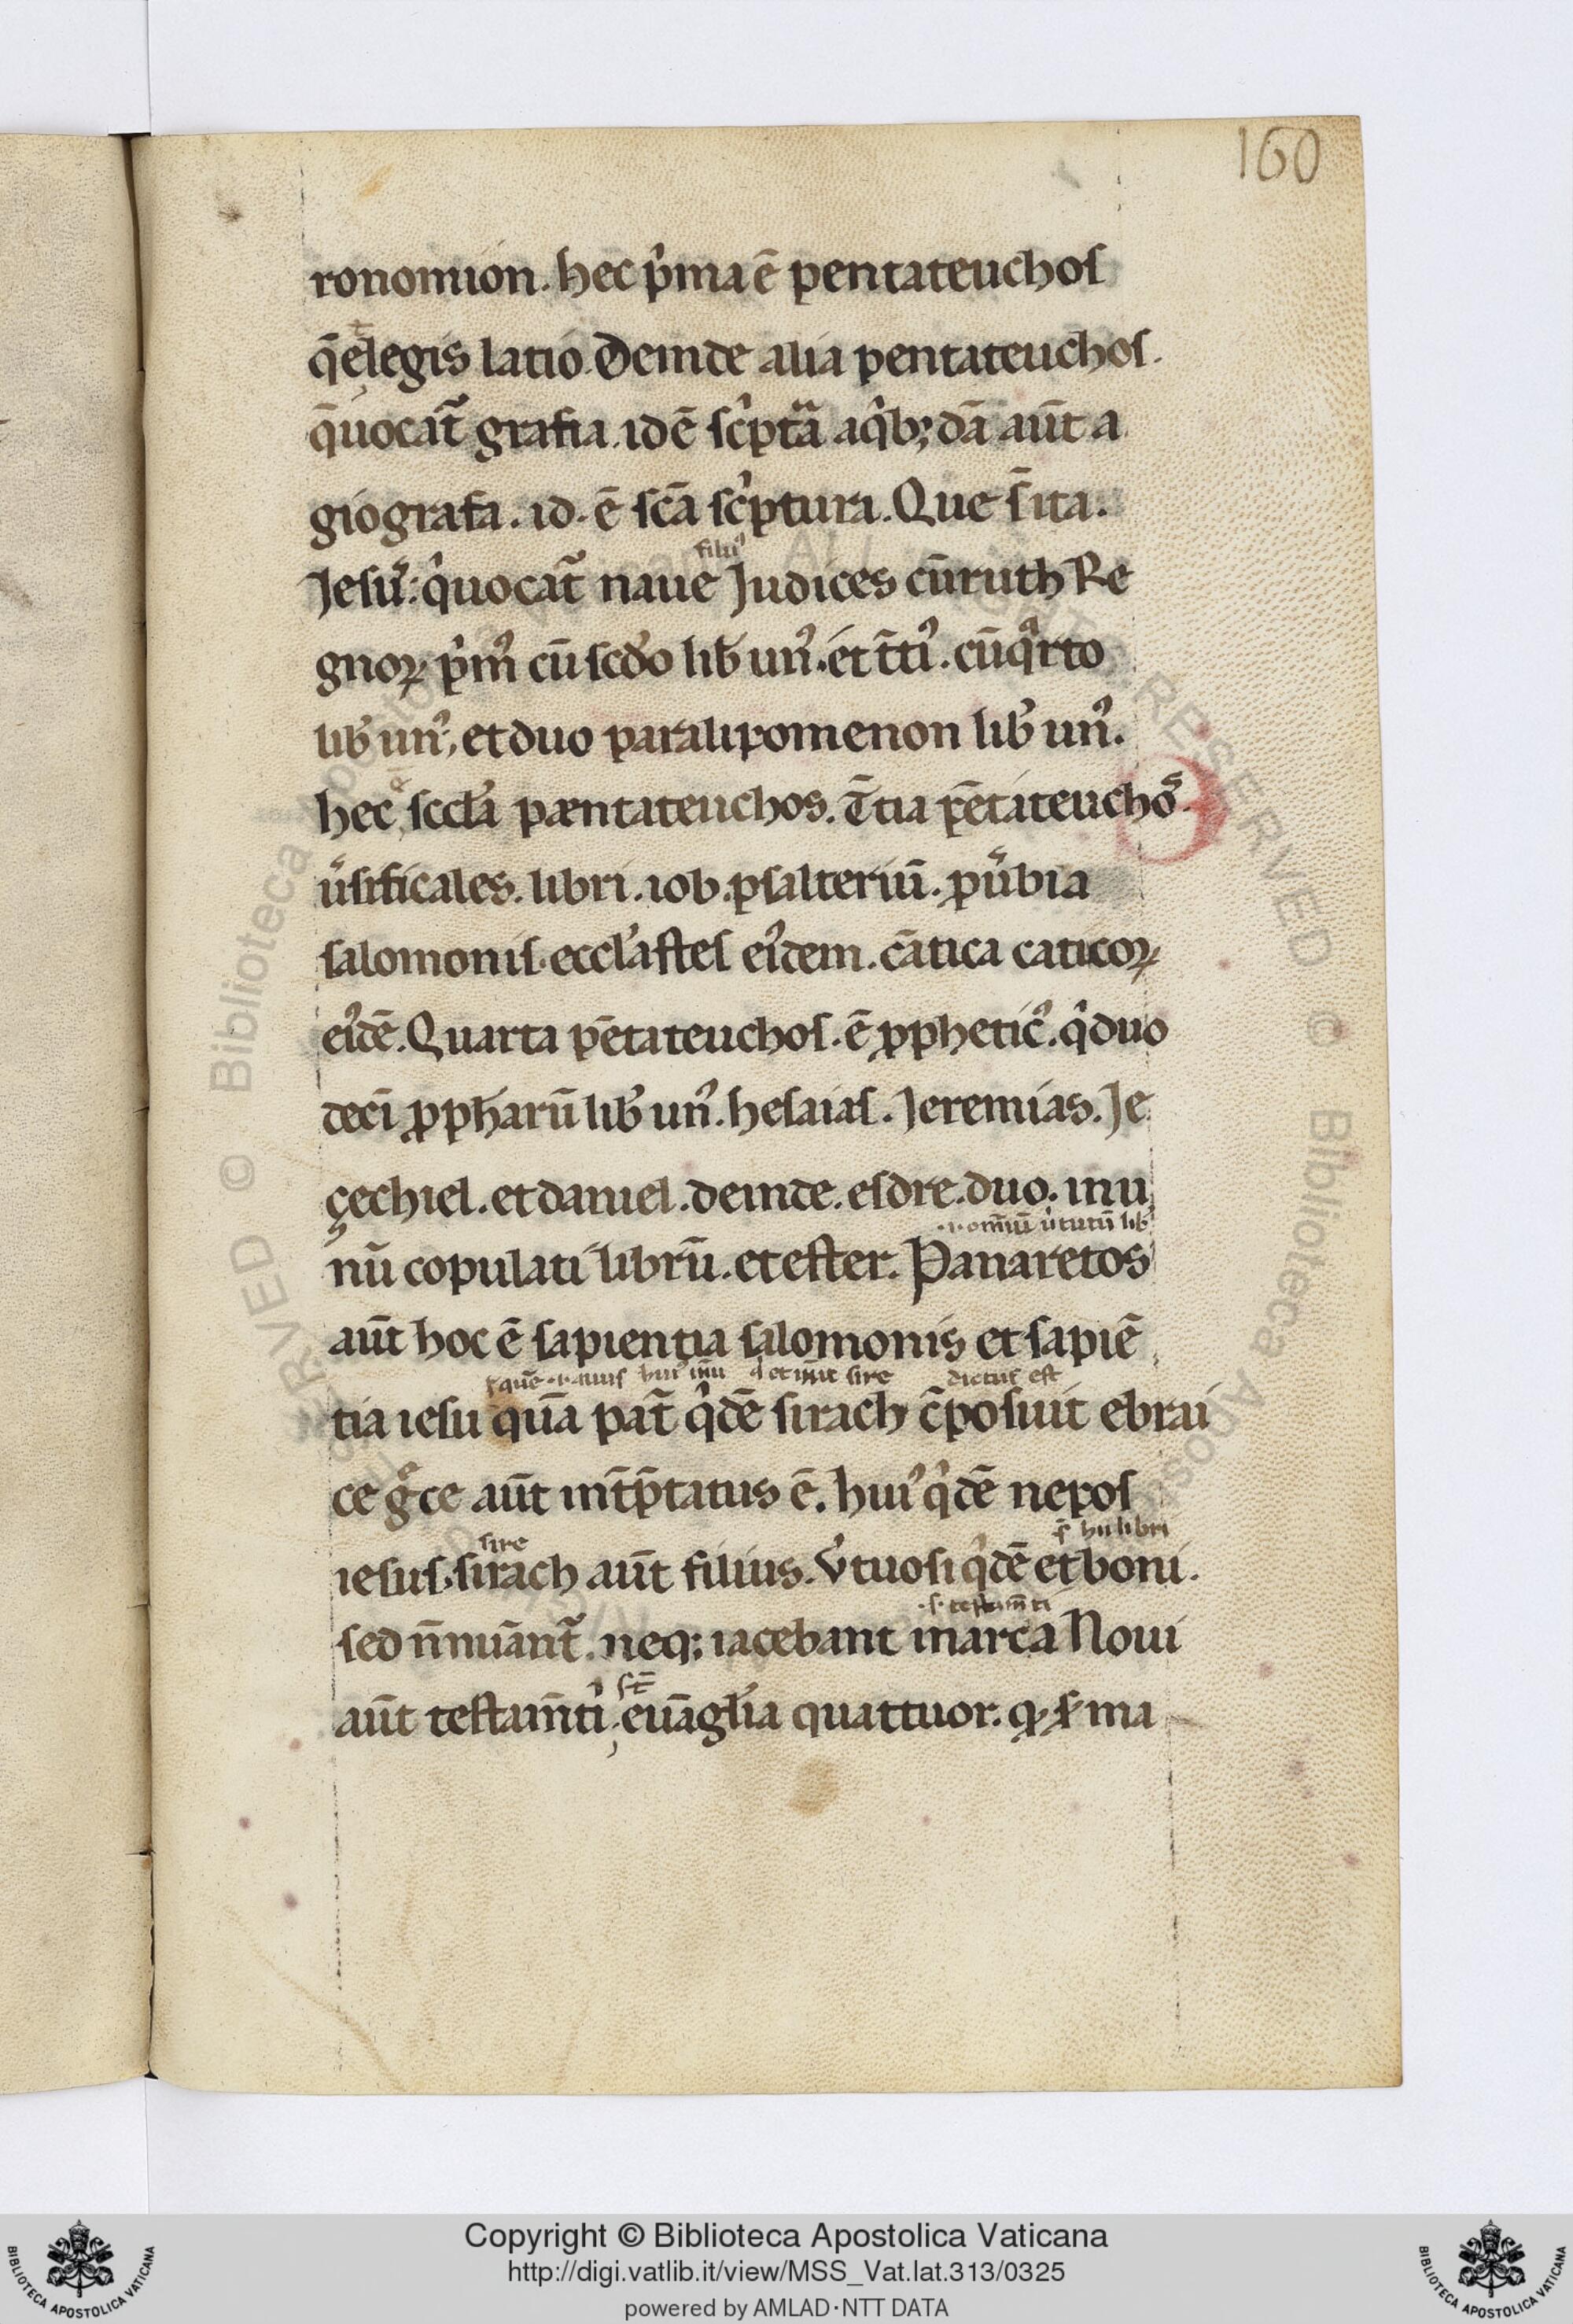 160
ronomion. hec pͥma ē pentateuchoſ
q̄ ē legis latio. Deinde alia pentateuchoſ.
q̄ uocat᷑ grafia. id ē ſcͥptᷓa a qͥb; dā aūt a
giografa. id. ē ſcā ſcͥptura. Que ſ̄ ita.
filiꝰ
Jeſuſ: qͥ uocat᷑ naue Judices cū ruth Re
gnoꝝ pͥmꝰ cū ſcd̓o lib̓ unꝰ. et t̄tiꝰ. cū qͣrto
lib̓ unꝰ, et duo paralipomenon lib̓ unꝰ.
hec ſccl̓a pæntateuchos. T̄tia pētateuchoſ.
u̓ſificales. libri. iob. pſalteriū. ꝓu̓bia
ſalomoniſ. eccl̓aſteſ eiꝰdem. cātica caticoꝝ
eiꝰdē. Quarta pētateuchoſ. ē ꝓpheticꝰ. qͥ duo
deci ꝓph̄arū lib̓ unꝰ. heſaiaſ. Jeremias. Je
çechiel. et daniel. deinde. eſdre. duo. in u
.i. omīū u̓tutū lib̓
nū copulati librū. et eſter. Panaretos
aūt hoc ē ſapientia ſalomonis et ſapiē
dictuſ eſt
tia ieſu quā pat᷑ qͥdē ſirach c̄poſuit ebrai
ce gͣce aūt int̄p̄tatus ē. huiꝰ qͥdē nepoſ
ſire
ſ̄ hii libri
ieſuſ. ſirach aūt filius. Vͥtuoſi qͥdē et boni.
.ſ. teſtam̄ti
ſed n̄ nuānt᷑. neq; iacebant in arca Noui
ſt̄
aūt teſtam̄ti euāgl̓ia quattuor. qͥ ſ̄ ma
Copyright © Biblioteca Apostolica Vaticana
http://digi.vatlib.it/view/MSS_Vat.lat.313/0325
powered by AMLAD·NTT DATA
BIBLIOTECA APOSTOLICA VATICANA
BIBLIOTECA APOSTOLICA VATICANA